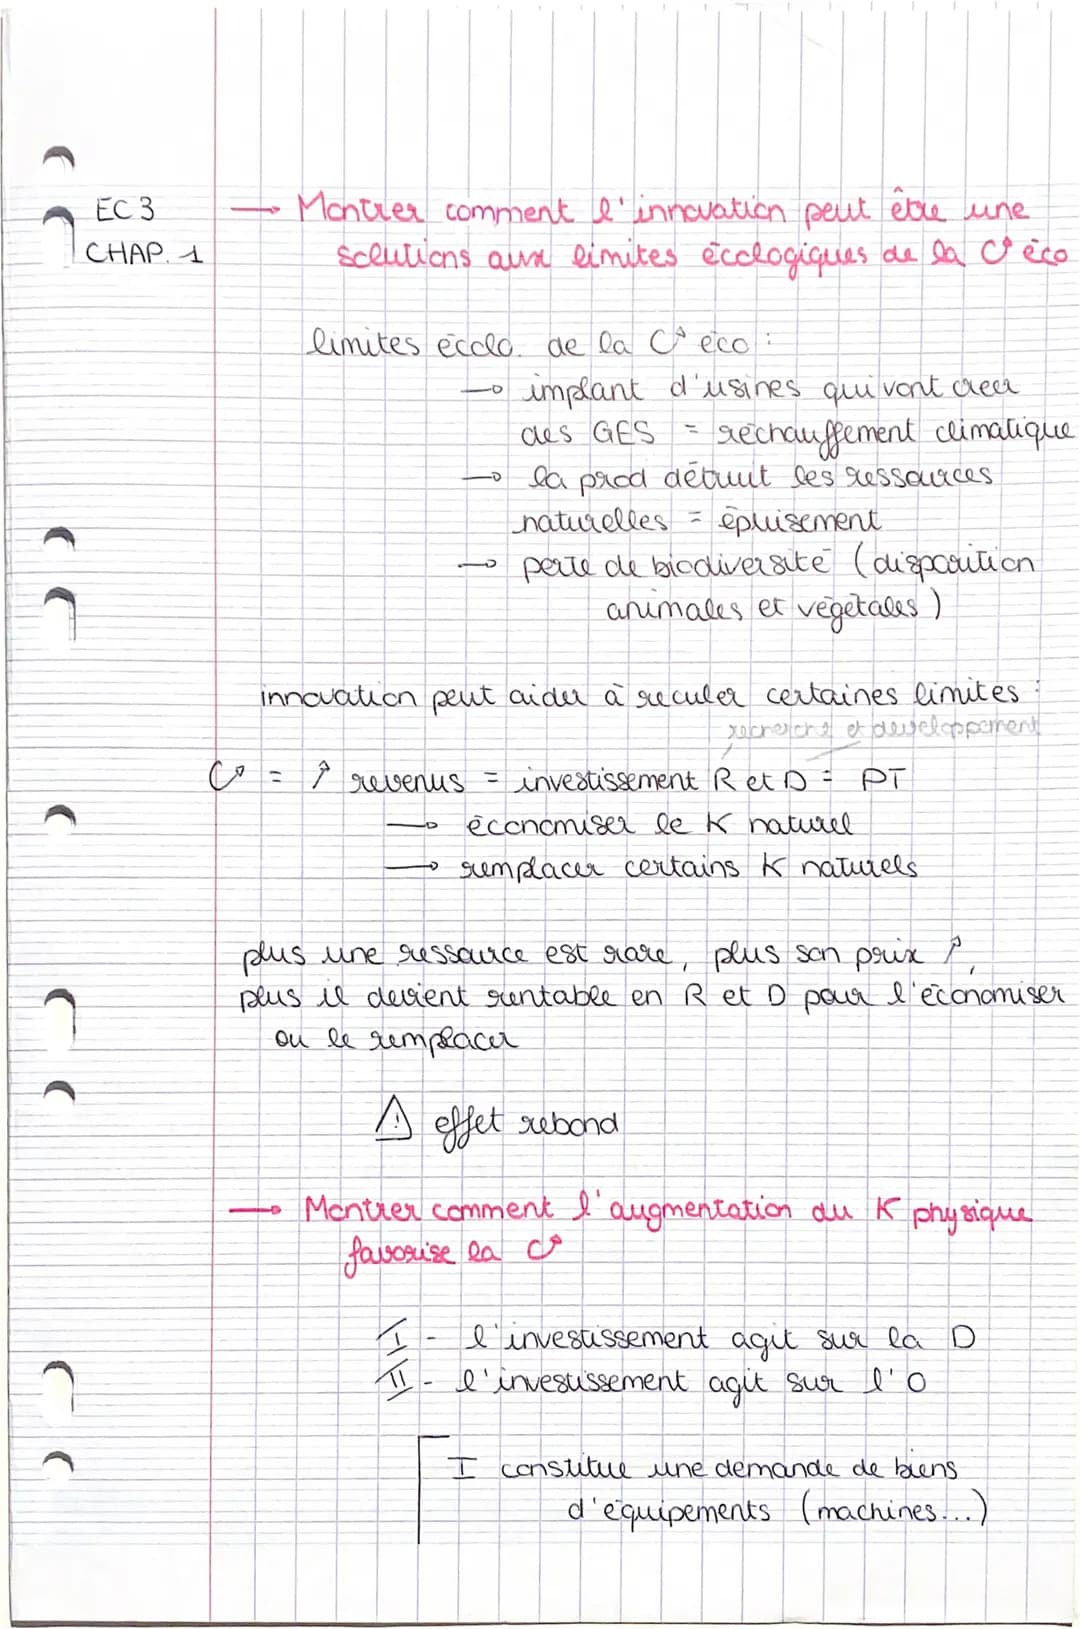 EC 3 → Montrer comment l'innovation peut être une
CHAP. 1 solutions aux limites écologiques de la C° éco
limites écolo. de la C° éco :
→ implant d'usines qui vont creer
des GES = réchauffement climatique
→ la prod détruit les ressources
naturelles = épuisement
→ perte de biodiversité (disparition
animales et végétales)
innovation peut aider à reculer certaines limites :
recherche et developpement
C° = ↑ revenus = investissement R et D = PT
→ économiser le K naturel
→ remplacer certains K naturels
plus une ressource est rare, plus son prix ↑,
plus il devient rentable en R et D pour l'économiser
ou le remplacer
⚠ effet rebond
→ Montrer comment l'augmentation du K physique
favorise la C°
I - l'investissement agit sur la D
II - l'investissement agit sur l'O
I constitue une demande de biens
d'équipements (machines...)